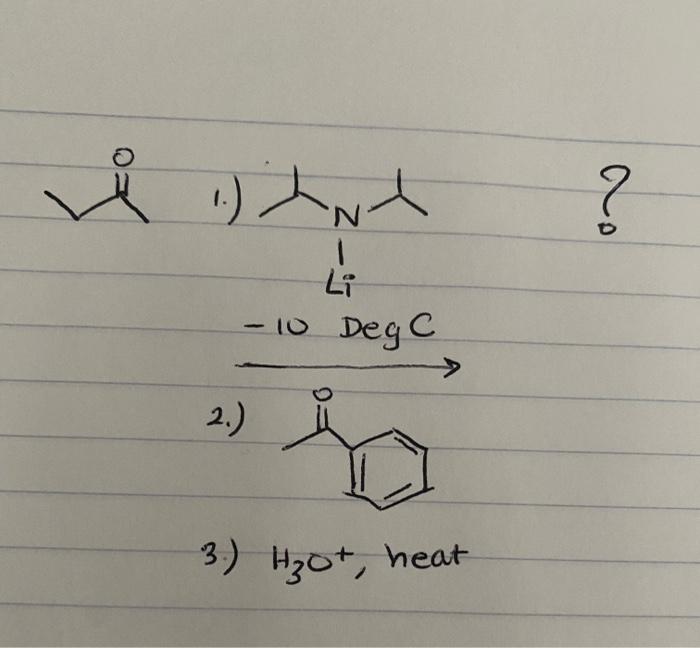 O
1.) N ?
Li
-10 Deg C
2.) O
3.) H₃O⁺, heat